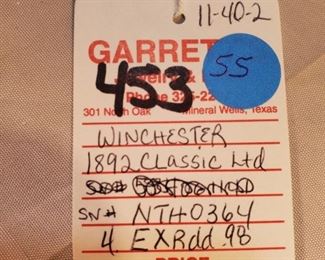 11-40-2
GARRET
55
453
& 
Phone 32
-22
301 North Oak Mineral Wells, Texas
WINCHESTER
1892 Classic Ltd
SN# NTH0364
4 EXRdd .98
PRICE